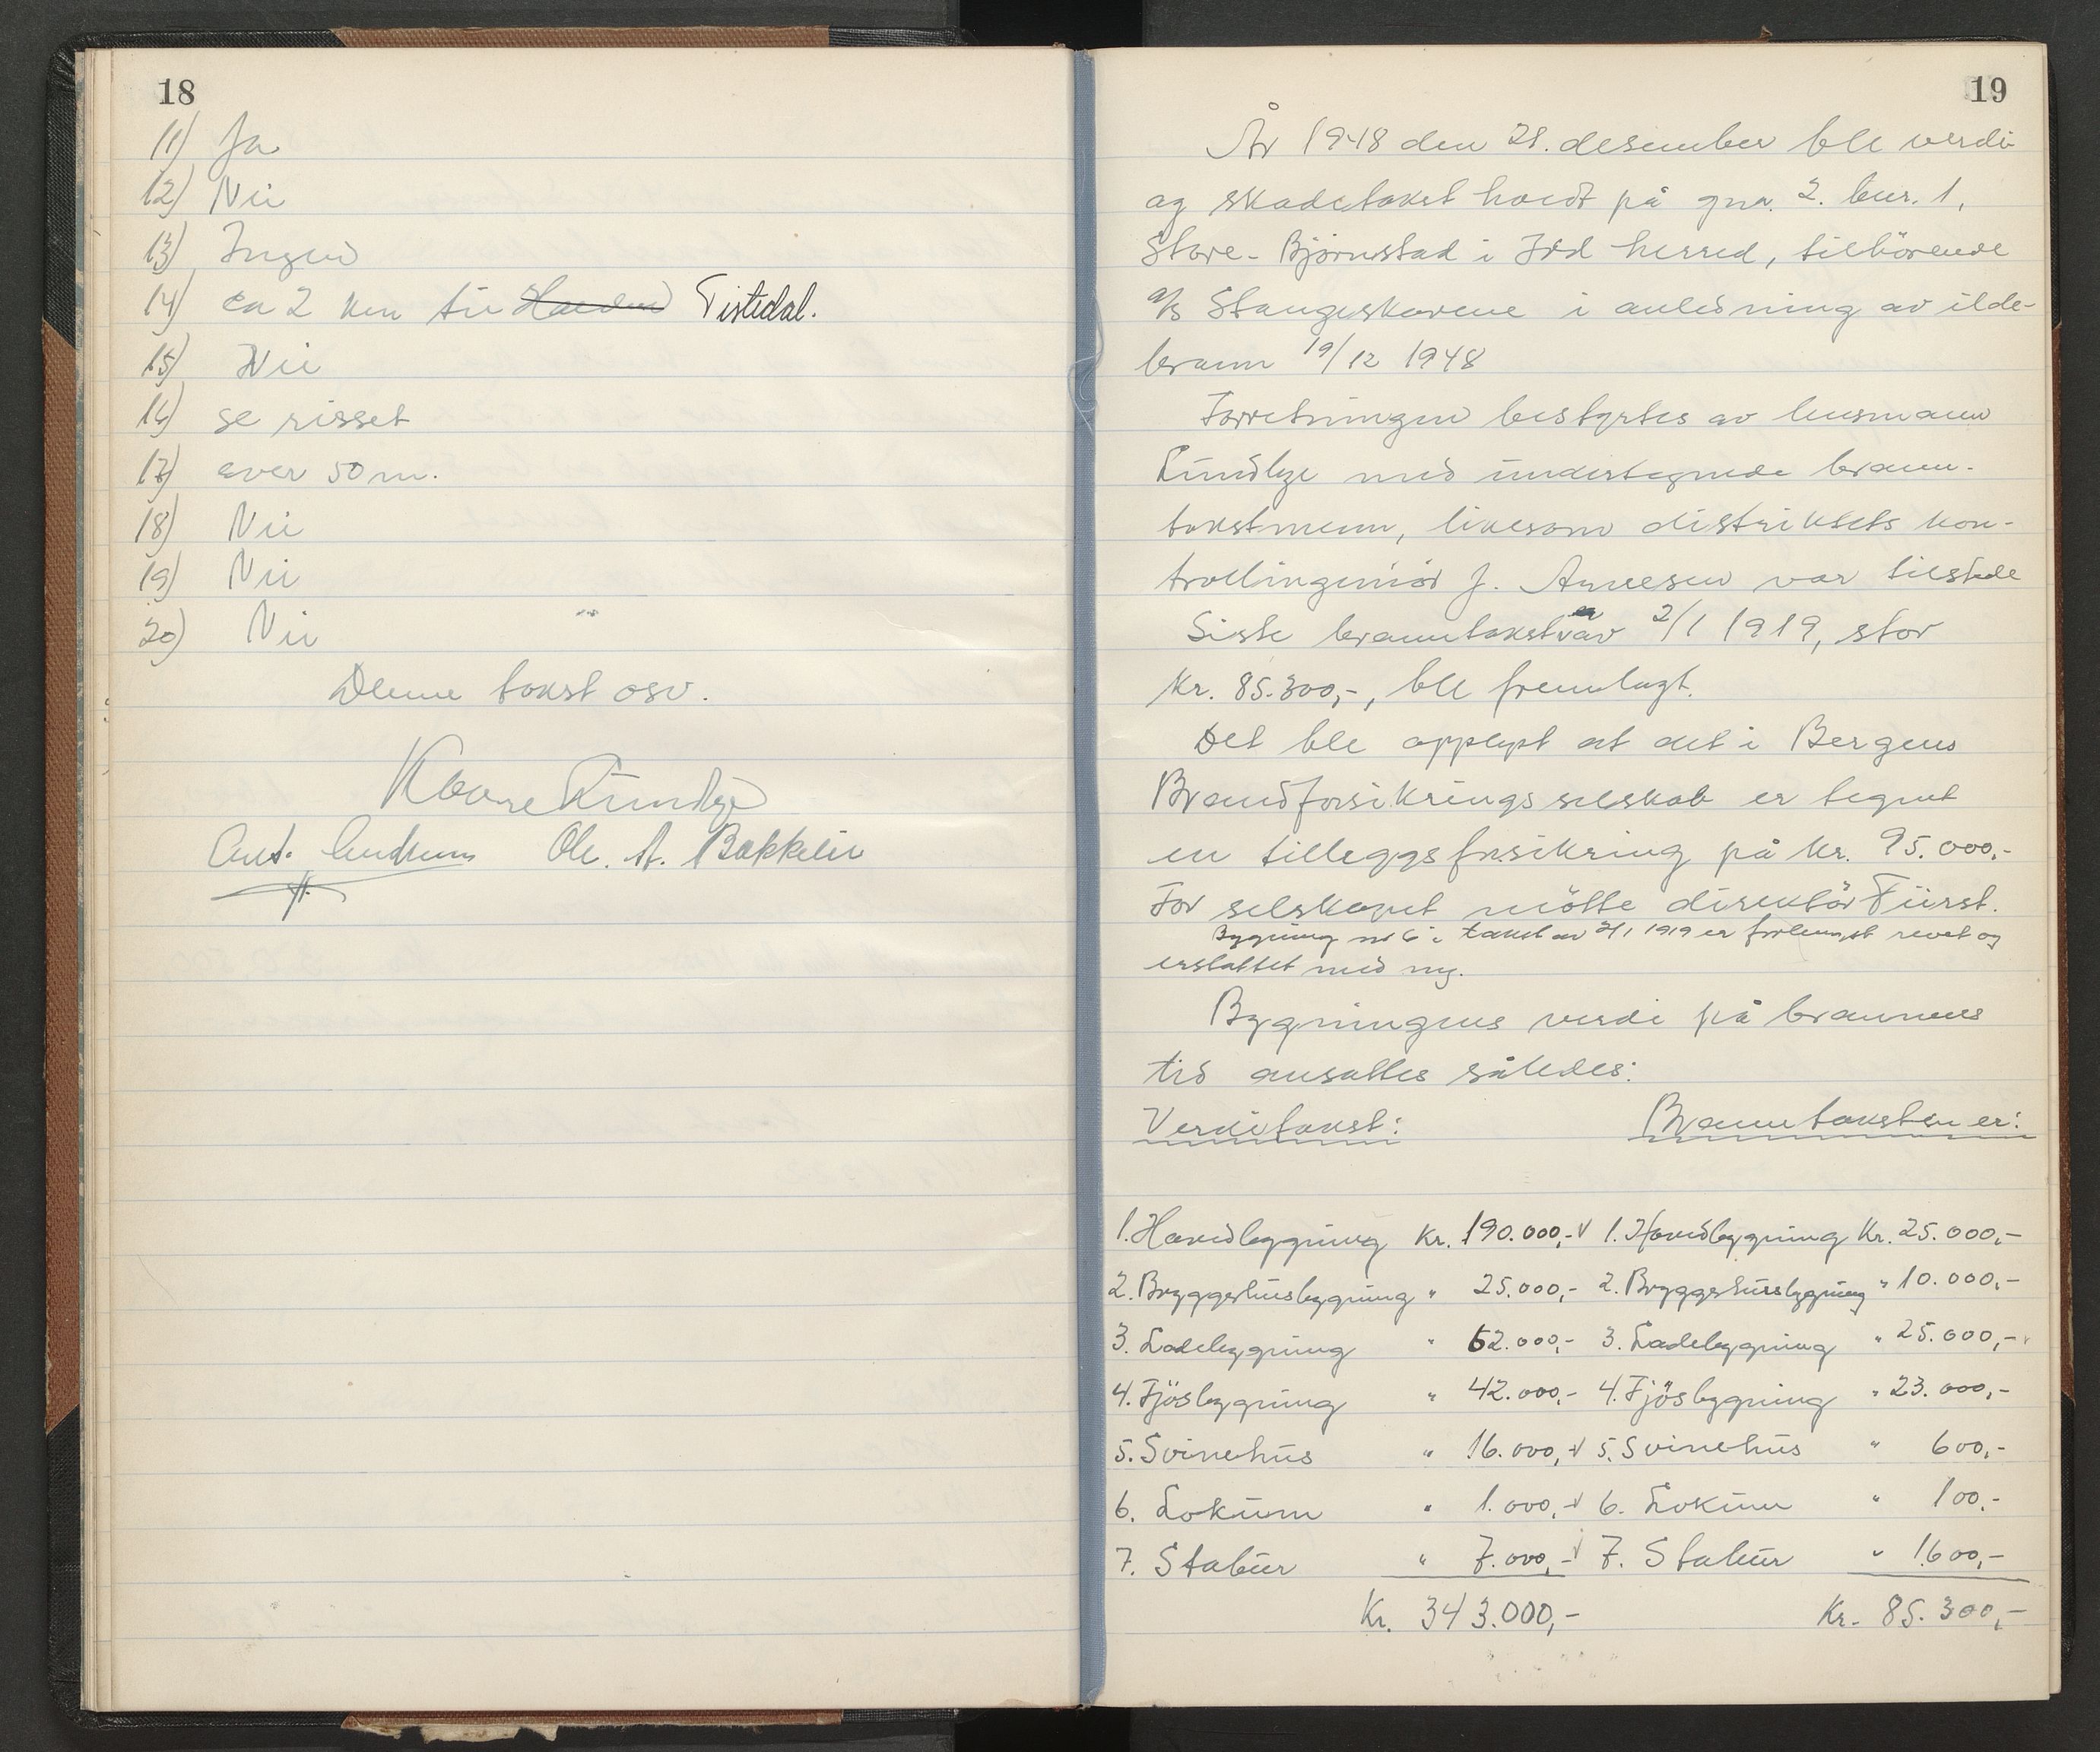 18
11) Ja
12) Nei
13) Ingen
14) ca 2 km til Halden Tistedal.
15) Nei
16) se risset
17) over 50 m.
18) Nei
19) Nei
20) Nei
Denne takst osv.
Kaare Lundbye
Ole. A. Bakkelie
19
År 1948 den 28. desember ble verdi-
og skadetakst holdt på gnr. 2. bnr. 1,
Store-Bjørnstad i Idd herred, tilhörende
A/S Stangeskovene i anledning av ilde-
brann 19/12 1948
Forretningen bestyrtes av lensmann
Lundbye med undertegnede brann-
takstmenn, likesom distriktets kon-
trollingeniör J. Annesen var tilstede
Siste branntakst er av 2/1 1919, stor
Kr. 85.300,-, ble fremlagt.
Det ble opplyst at det i Bergens
Brandforsikringsselskab er tegnet
en tilleggsforsikring på kr. 95.000,-
For selskapet mötte direktör Fürst.
Bygning nr 6 i takst av 2/1 1919 er forlengst revet og
erstattet med ny.
Bygningens verdi på brannens
tid ansattes således:
Verditakst: Branntaksten er:
1. Hovedbygning Kr. 190.000,- 1. Hovedbygning Kr. 25.000,-
2. Bryggerhusbygning " 25.000,- 2. Bryggerhusbygning " 10.000,-
3. Ladebygning " 62.000,- 3. Ladebygning " 25.000,-
4. Fjösbygning " 42.000,- 4. Fjösbygning " 23.000,-
5. Svinehus " 16.000,- 5. Svinehus " 600,-
6. Lokum " 1.000,- 6. Lokum " 100,-
7. Stabur " 7.000,- 7. Stabur " 1600,-
Kr. 343.000,- Kr. 85.300,-